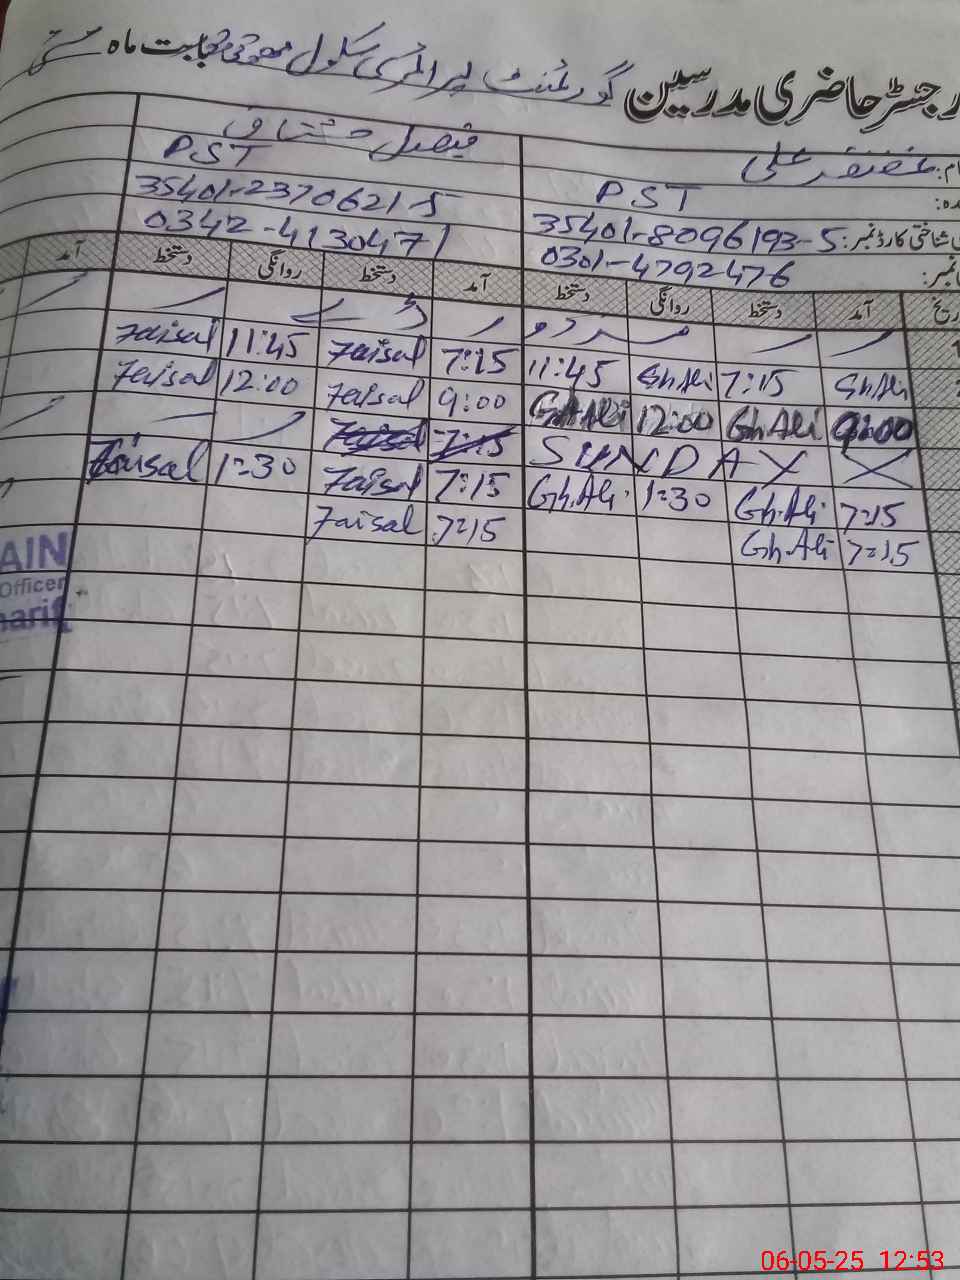 رجسٹر حاضری مدرسین گورنمنٹ پرائمری سکول بابت ماہ مئی
نام: غضنفر علی فیصل مشتاق
PST PST
شناختی کارڈ نمبر: 35401-8096193-5 35401-2370621-5
0301-4792476 0342-4130471
آمد دستخط روانگی دستخط آمد دستخط روانگی دستخط آمد
Gh.Ali 7:15 Gh.Ali 11:45 7:15 Faisal 11:45 Faisal
9:00 Gh.Ali 12:00 Gh.Ali 9:00 Faisal 12:00 Faisal
SUNDAY Faisal 7:15
7:15 Gh.Ali 1:30 Gh.Ali 7:15 Faisal 1:30 Faisal
7:15 Gh.Ali 7:15 Faisal
AIN
Officer
harif
06-05-25 12:53